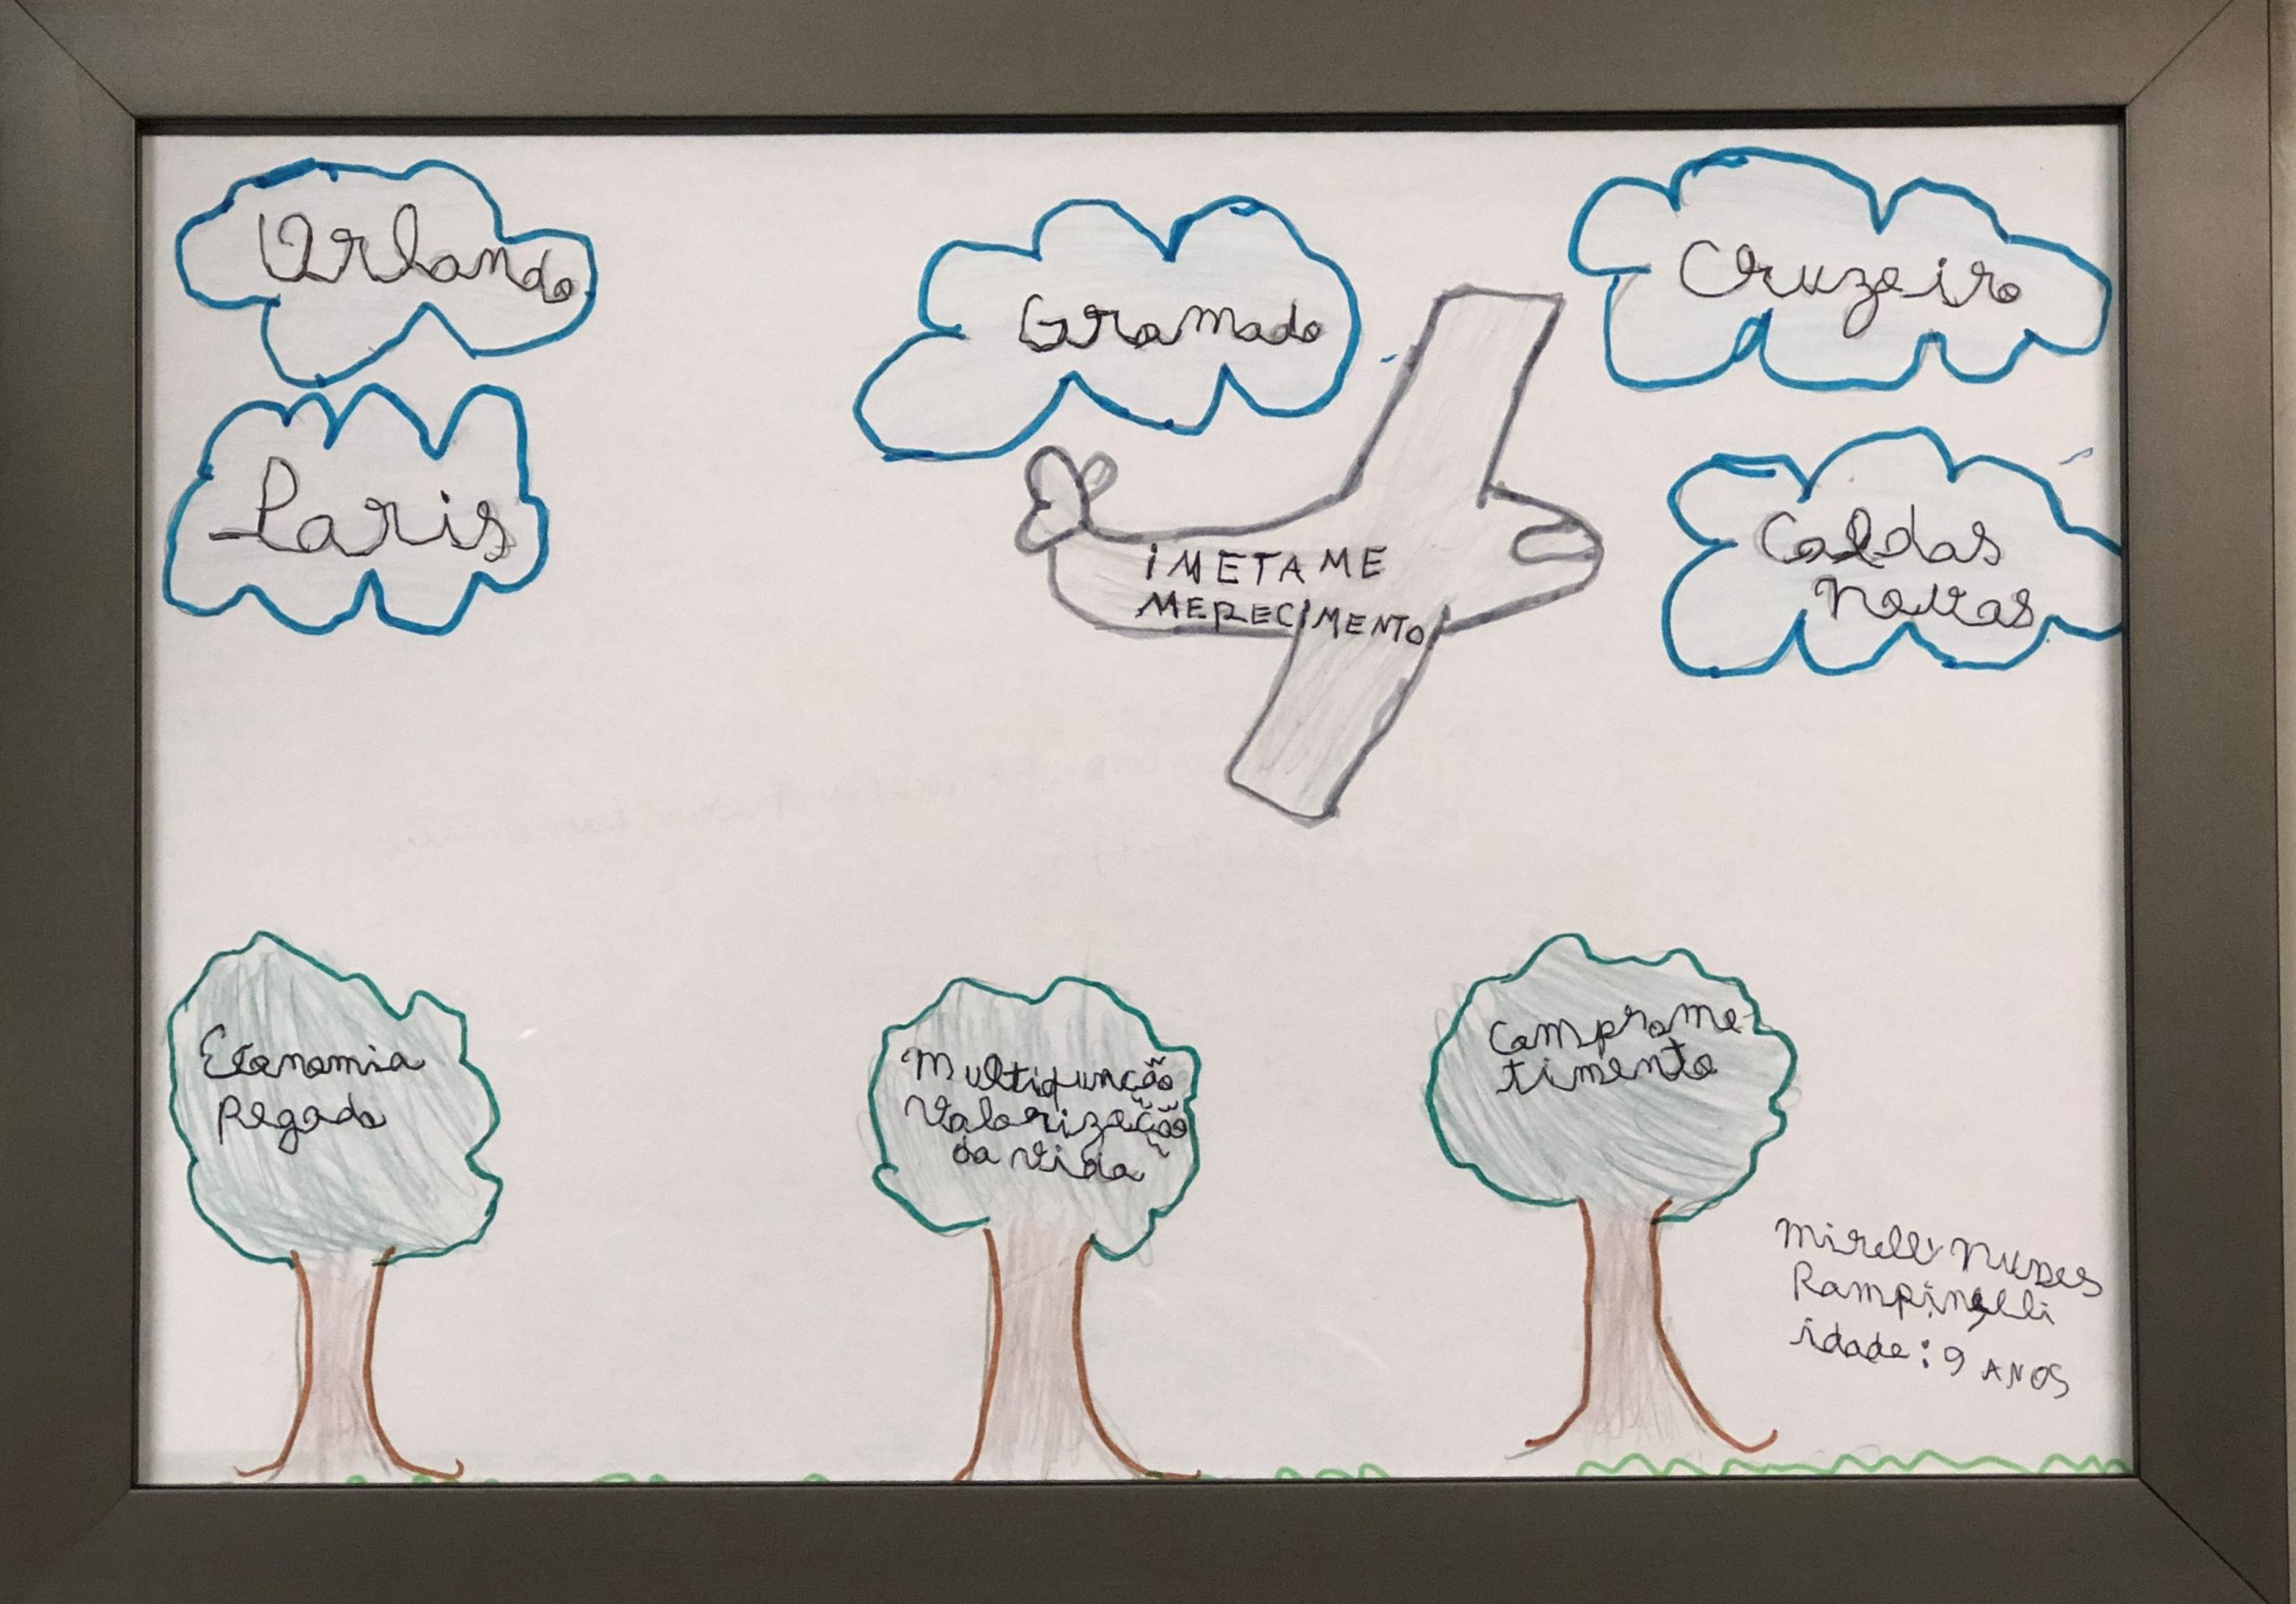 Orlando
Gramado
Cruzeiro
Paris
Caldas
Novas
IMETAME
MERECIMENTO
Economia
Pegada
Multifunção
Valorização
da vida
Comprome
timento
Mirelli Nunes
Rampinelli
idade: 9 ANOS